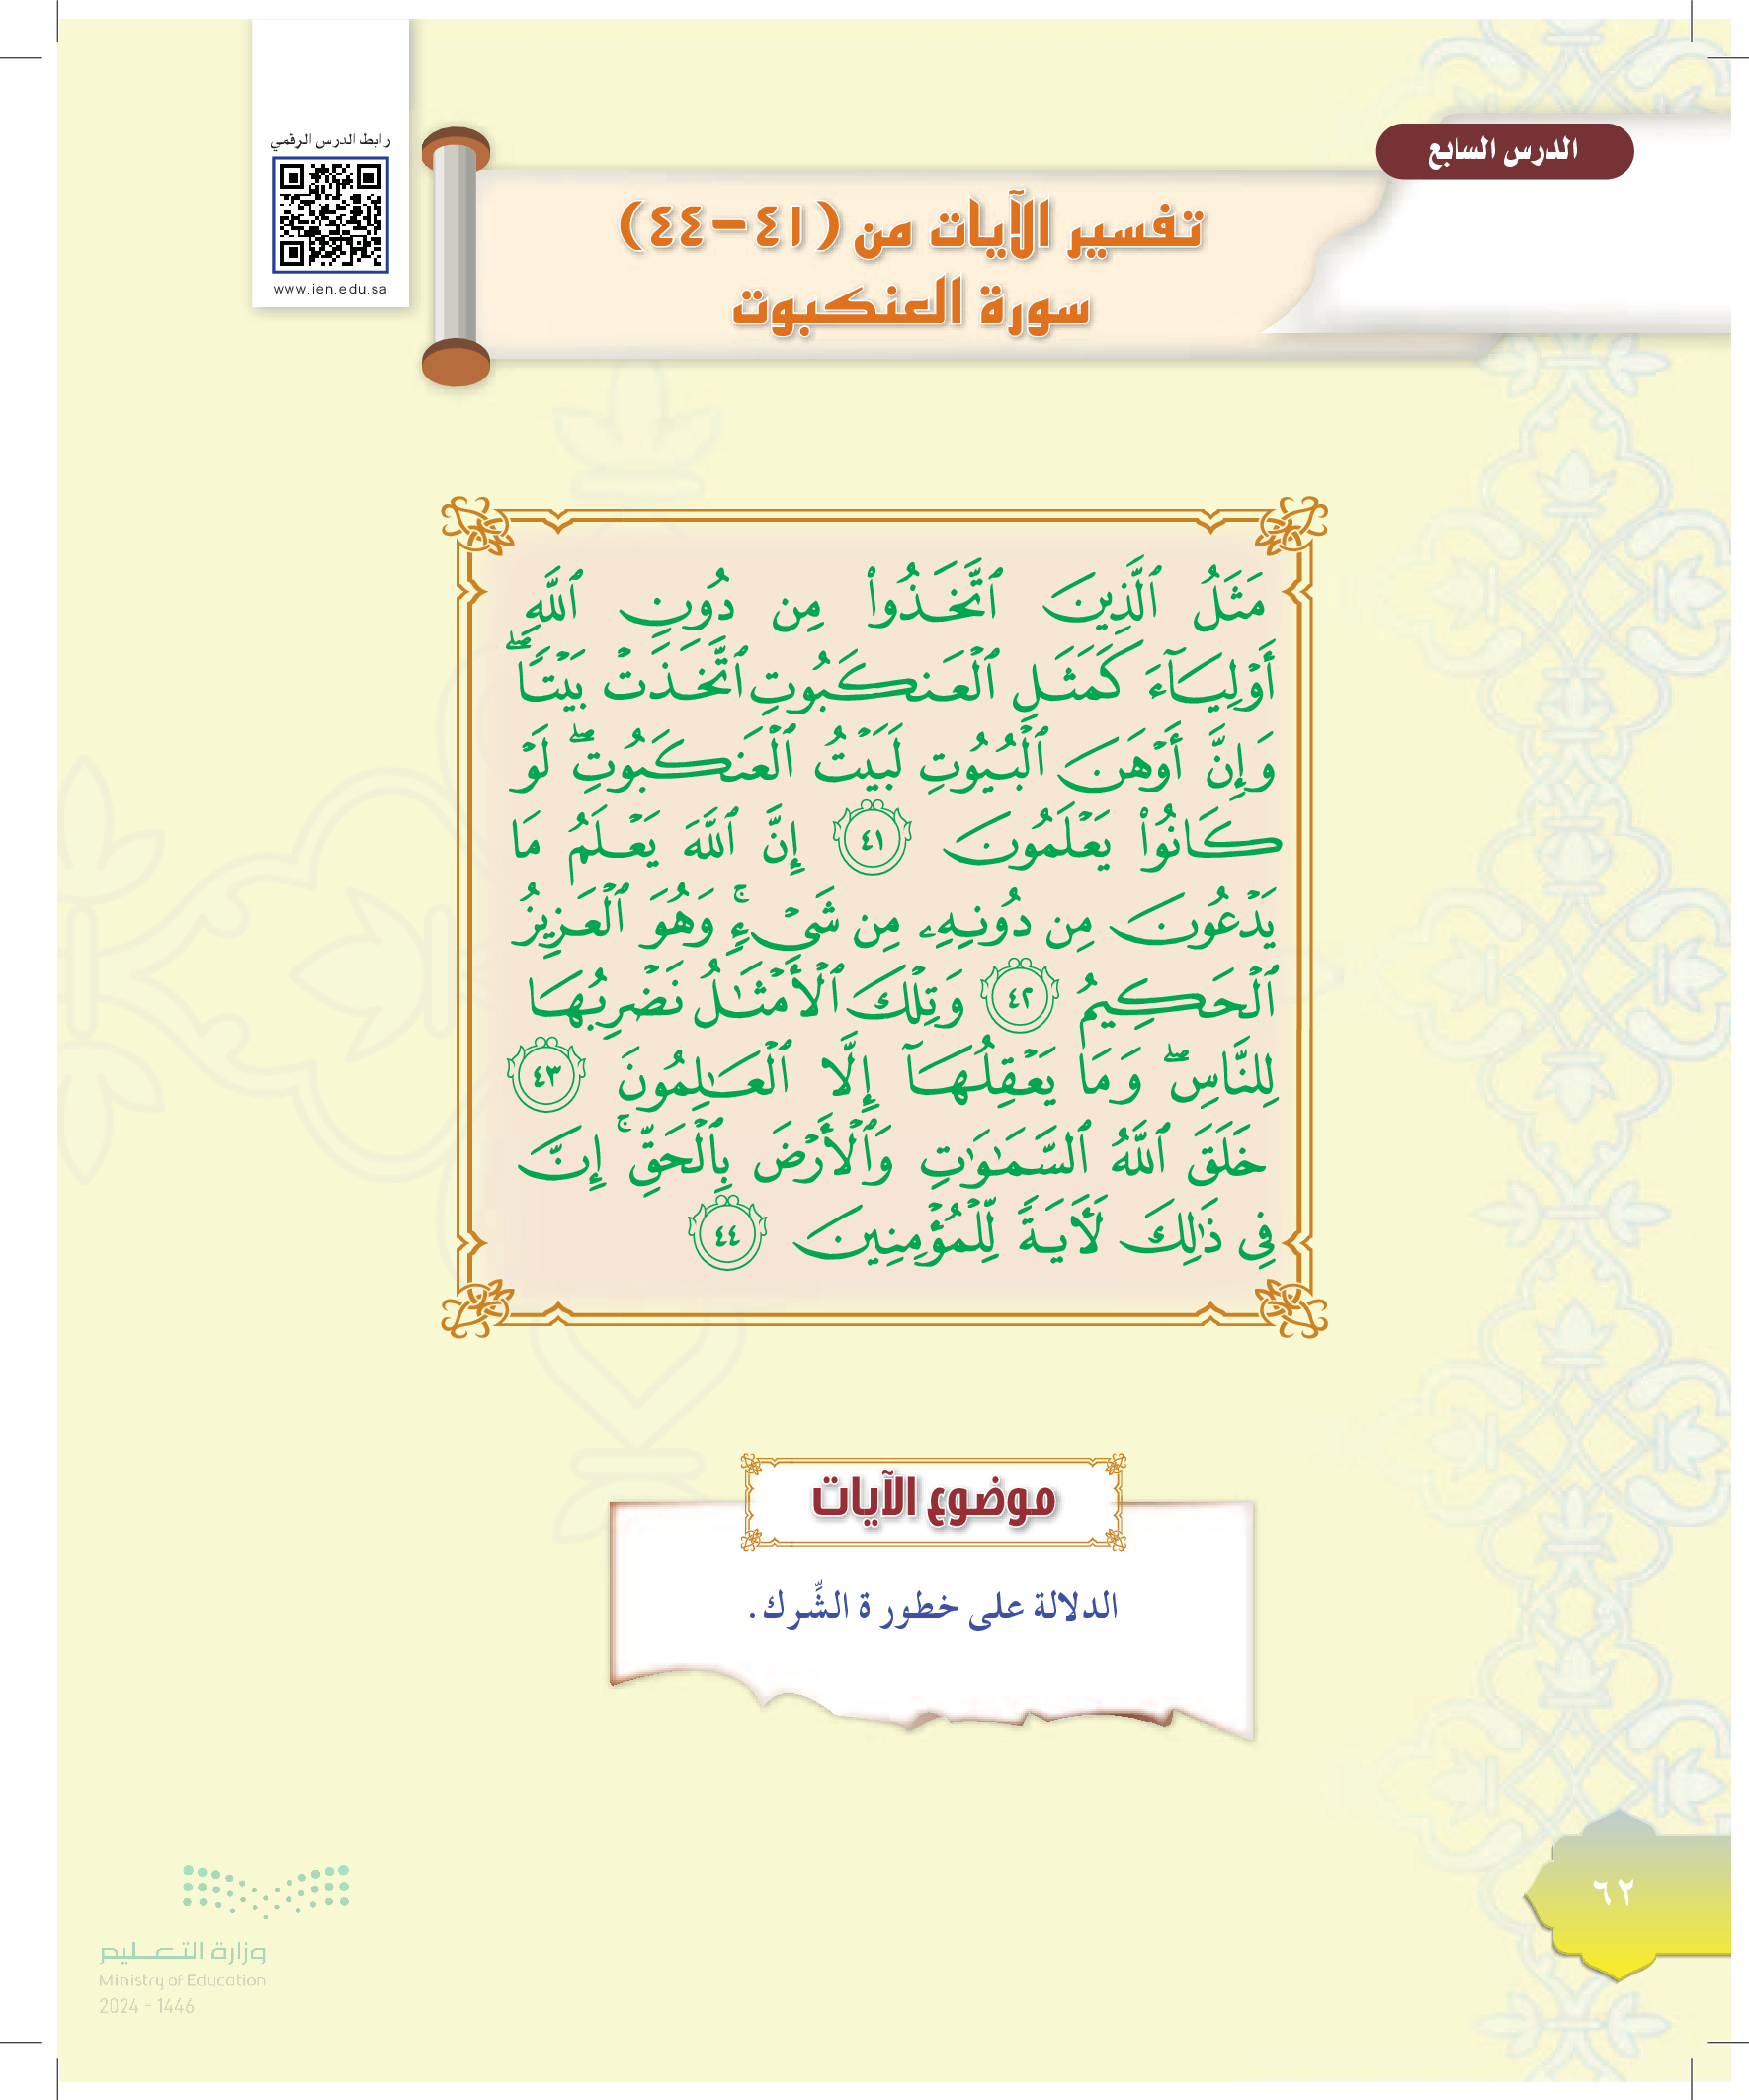 الدرس السابع
رابط الدرس الرقمي
www.ien.edu.sa
تفسير الآيات من (٤١-٤٤)
سورة العنكبوت
مَثَلُ ٱلَّذِينَ ٱتَّخَذُوا۟ مِن دُونِ ٱللَّهِ
أَوْلِيَآءَ كَمَثَلِ ٱلْعَنكَبُوتِ ٱتَّخَذَتْ بَيْتًا ۖ
وَإِنَّ أَوْهَنَ ٱلْبُيُوتِ لَبَيْتُ ٱلْعَنكَبُوتِ ۖ لَوْ
كَانُوا۟ يَعْلَمُونَ ٤١ إِنَّ ٱللَّهَ يَعْلَمُ مَا
يَدْعُونَ مِن دُونِهِۦ مِن شَىْءٍ ۚ وَهُوَ ٱلْعَزِيزُ
ٱلْحَكِيمُ ٤٢ وَتِلْكَ ٱلْأَمْثَٰلُ نَضْرِبُهَا
لِلنَّاسِ ۖ وَمَا يَعْقِلُهَآ إِلَّا ٱلْعَٰلِمُونَ ٤٣
خَلَقَ ٱللَّهُ ٱلسَّمَٰوَٰتِ وَٱلْأَرْضَ بِٱلْحَقِّ ۚ إِنَّ
فِى ذَٰلِكَ لَءَايَةً لِّلْمُؤْمِنِينَ ٤٤
موضوع الآيات
الدلالة على خطورة الشِّرك.
٦٢
وزارة التعليم
Ministry of Education
2024 - 1446